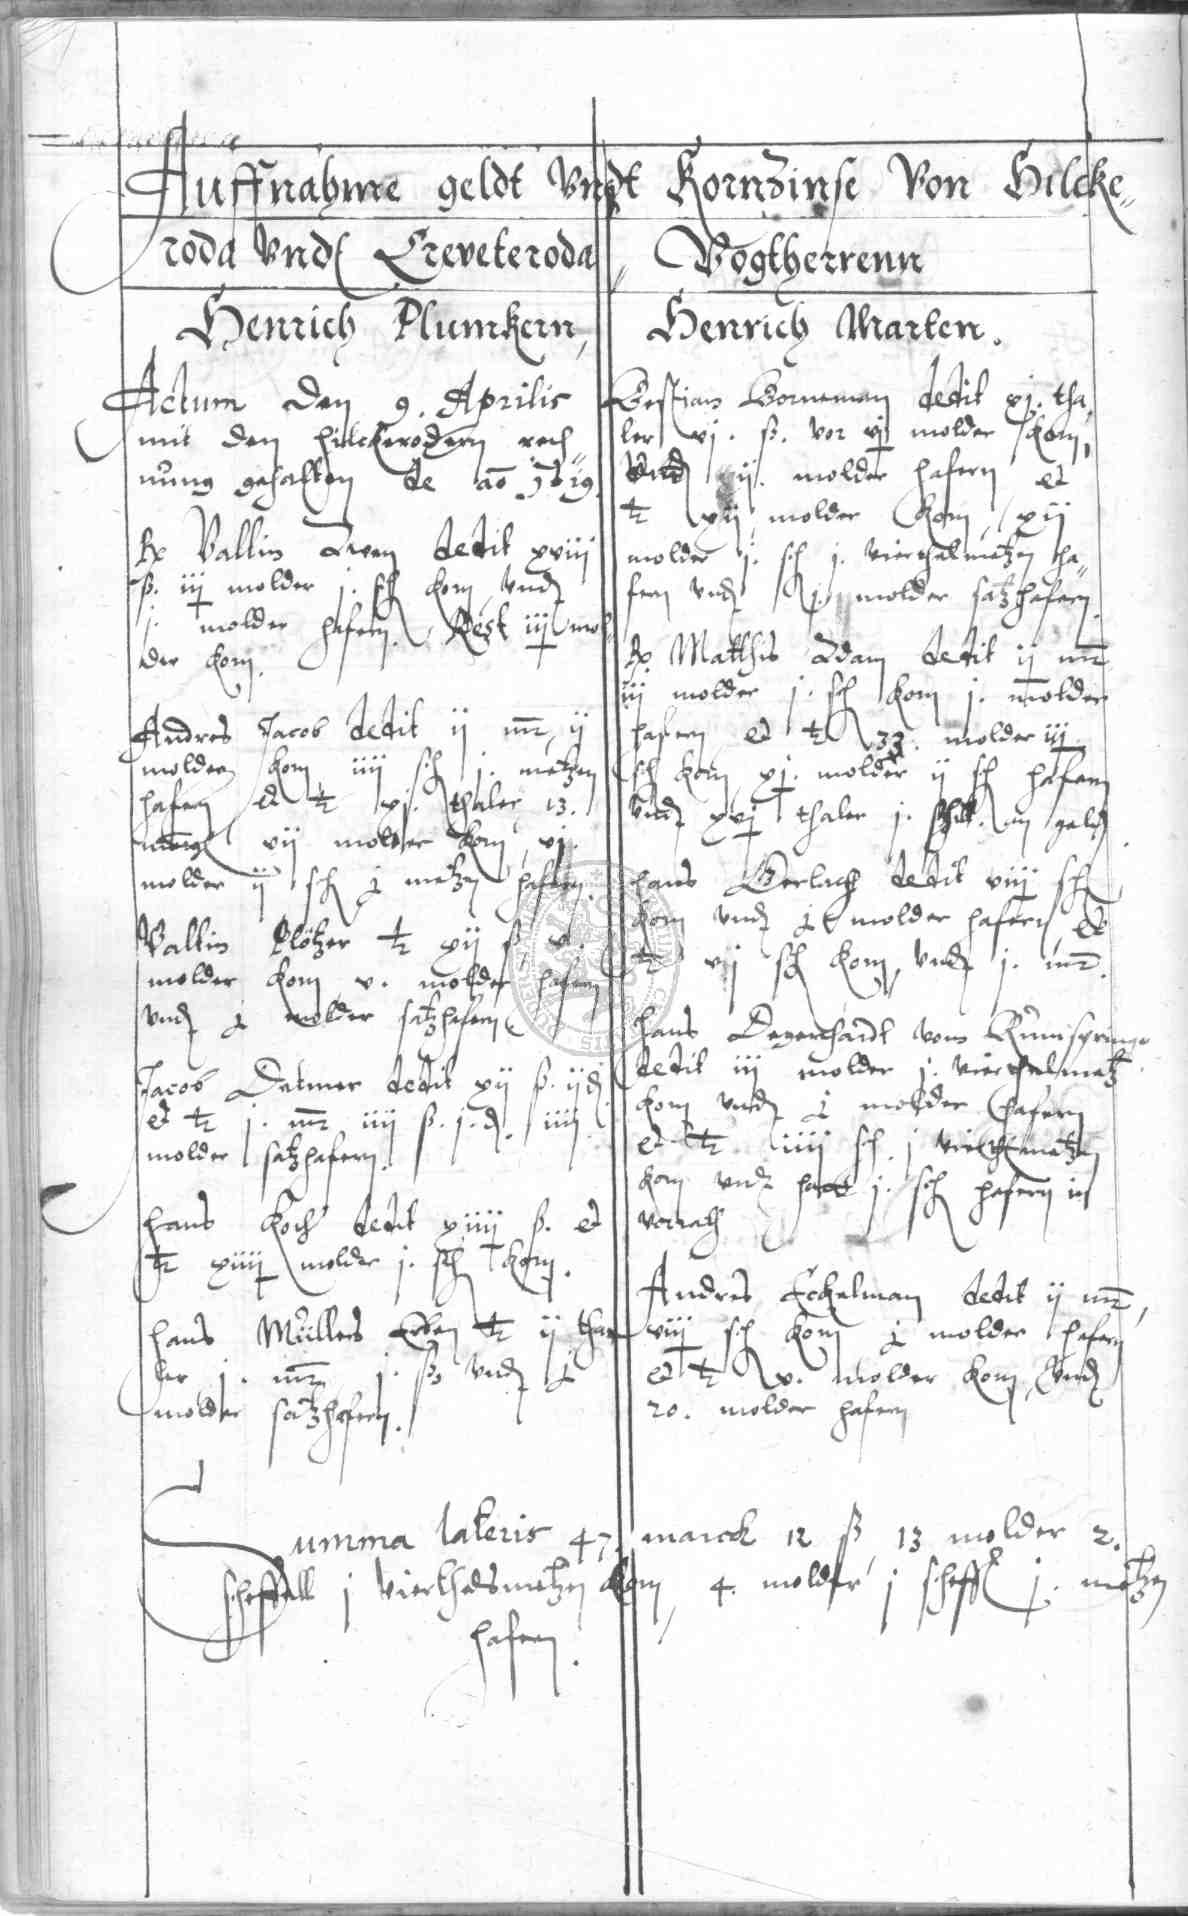 Auffnahme geldt Vndt Kornzinse Von Hilcke„
roda Vndt Creveteroda„ Vogtherrenn
Henrich Plumkern, Henrich Marten.
Actum den 9. Aprilis
mit den Hilckerodern rech„
nung gehalten de ao
Rx Valtin dedit xviij
ß. iij molder j. sch korn vnd
j. molder hafern. Rest iij mol„
der korn.
Andres Jacob dedit ij mr, ij
molder korn iiij sch j. metzen
hafern et tr xj. thaler 13.
vij molder korn, vj.
molder ij sch metzen hafern.
Valtin Plötzer tr xij ß v.
molder korn v. molder hafern
vnd molder satzhafern
Jacob Datmer dedit xij ß. ijd
et tr j. mr iiij ß. j. d. iiij
molder satzhafern.
Hans Koch dedit xiiij ß. et
tr xiiij molder j. sch korn.
Hans Müllers Erben tr ij tha„
ler j. mr j. ß vnd
molder satzhafern.
Bestian Borneman dedit xj. tha„
ler vj. ß. vor vj molder korn,
Vnd ij. molder hafern et
tr xij molder korn, xij
molder j. sch j. vierthelmetzen ha„
fern vnd molder satzhafern.
Rx Matthis Adam dedit ij mr
iij molder j. sch korn j. molder
hafern et tr 33. molder iij.
sch korn xj. molder ij sch hafern
vnd xvj thaler j. schill. an geld.
Hans Gerlach dedit viij sch
korn vnd molder hafern et
tr vij sch korn, vnd j. mr.
Hans Degerhardt vom Rumspringe
dedit iij molder j. vierthelmetz
korn vnd molder hafern
et tr iiij sch. j vierthelmetzen
korn vnd hatt j. sch hafern in
vorrath
Andres Eckelman dedit ij mr,
viij sch korn molder hafern
et tr v. molder korn, vnd
20. molder hafern
Summa lateris 47. marck 12 ß, 13 molder 2.
scheffell j vierthelsmetzen korn, 4. molder j scheffel j. metzen
hafern.